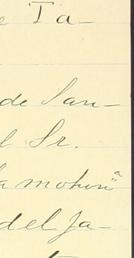 e Ta-
de San-
l Sr.
a mohiniª
del Ja-